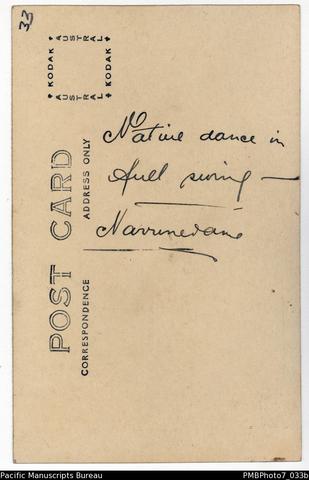 33
KODAK AUSTRAL
KODAK AUSTRAL
POST CARD
CORRESPONDENCE
ADDRESS ONLY
Native dance in
full swing —
Pacific Manuscripts Bureau
PMBPhoto7_033b